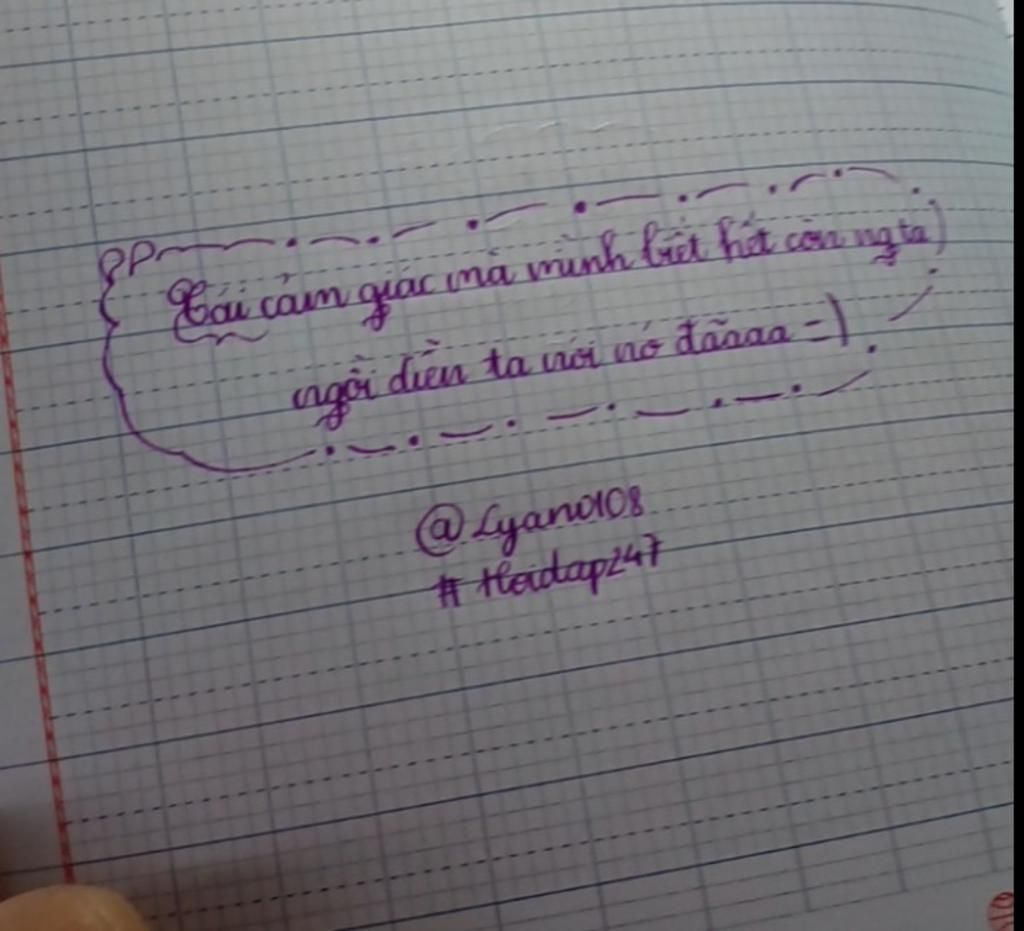 Cái cảm giác mà mình biết hết còn ng ta
ngồi diễn ta nói nó đãaaa =)
@Lyano108
# Hoidap247